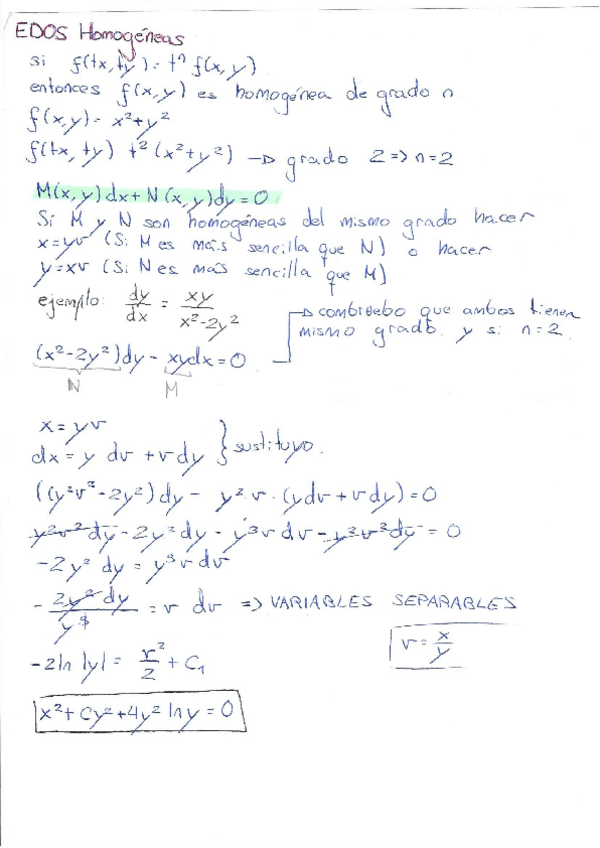 EDOS Homogéneas
si f(tx,ty) = tⁿ f(x,y)
entonces f(x,y) es homogénea de grado n
f(x,y) = x²+y²
f(tx, ty) t² (x²+y²) → grado 2 => n=2
M(x,y)dx + N(x,y)dy = 0
Si M y N son homogéneas del mismo grado hacer
x=yv (Si M es más sencilla que N) o hacer
y=xv (Si N es más sencilla que M)
ejemplo: dy/dx = xy/(x²-2y²)
→ combruebo que ambos tienen
mismo grado. y si n=2.
(x²-2y²)dy - xydx = 0
N M
x = yv
dx = y dv + v dy } sustituyo.
((y²v²-2y²)dy - y²v · (ydv + vdy) = 0
y²v²dy - 2y²dy - y³v dv - y²v²dy = 0
-2y² dy = y³v dv
- 2y² dy / y³ = v dv => VARIABLES SEPARABLES
v = x/y
-2ln |y| = v²/2 + C₁
x² + Cy² + 4y² ln y = 0